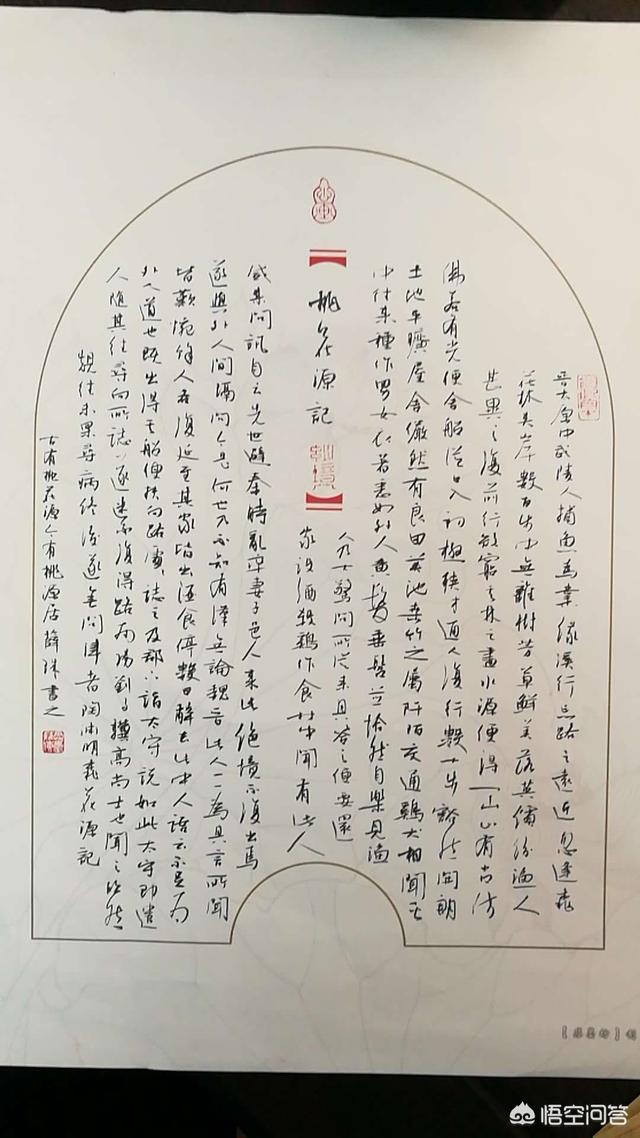 晋太原中武陵人捕魚為業緣溪行忘路之遠近忽逢桃
花林夾岸數百步中無雜樹芳草鮮美落英繽紛漁人
甚異之復前行欲窮其林々盡水源便得一山山有小口仿
佛若有光便舍船從口入初極狹才通人復行數十步豁然開朗
土地平曠屋舍儼然有良田美池桑竹之屬阡陌交通雞犬相聞其
中往來種作男女衣著悉如外人黄髮垂髫並怡然自樂見漁
人乃大驚問所從來具答之便要還
家設酒殺雞作食村中聞有此人
【桃花源記】
咸來問訊自云先世避秦時亂率妻子邑人來此絕境不復出焉
遂與外人間隔問今是何世乃不知有漢無論魏晉此人一一為具言所聞
皆歎惋餘人各復延至其家皆出酒食停數日辭去此中人語云不足為
外人道也既出得其船便扶向路處々誌之及郡下詣太守說如此太守即遣
人隨其往尋向所誌遂迷不復得路南陽劉子驥高尚士也聞之欣然
親往未果尋病終後遂無問津者陶淵明桃花源記
古有桃花源今有桃源居薛珠書之
悟空问答